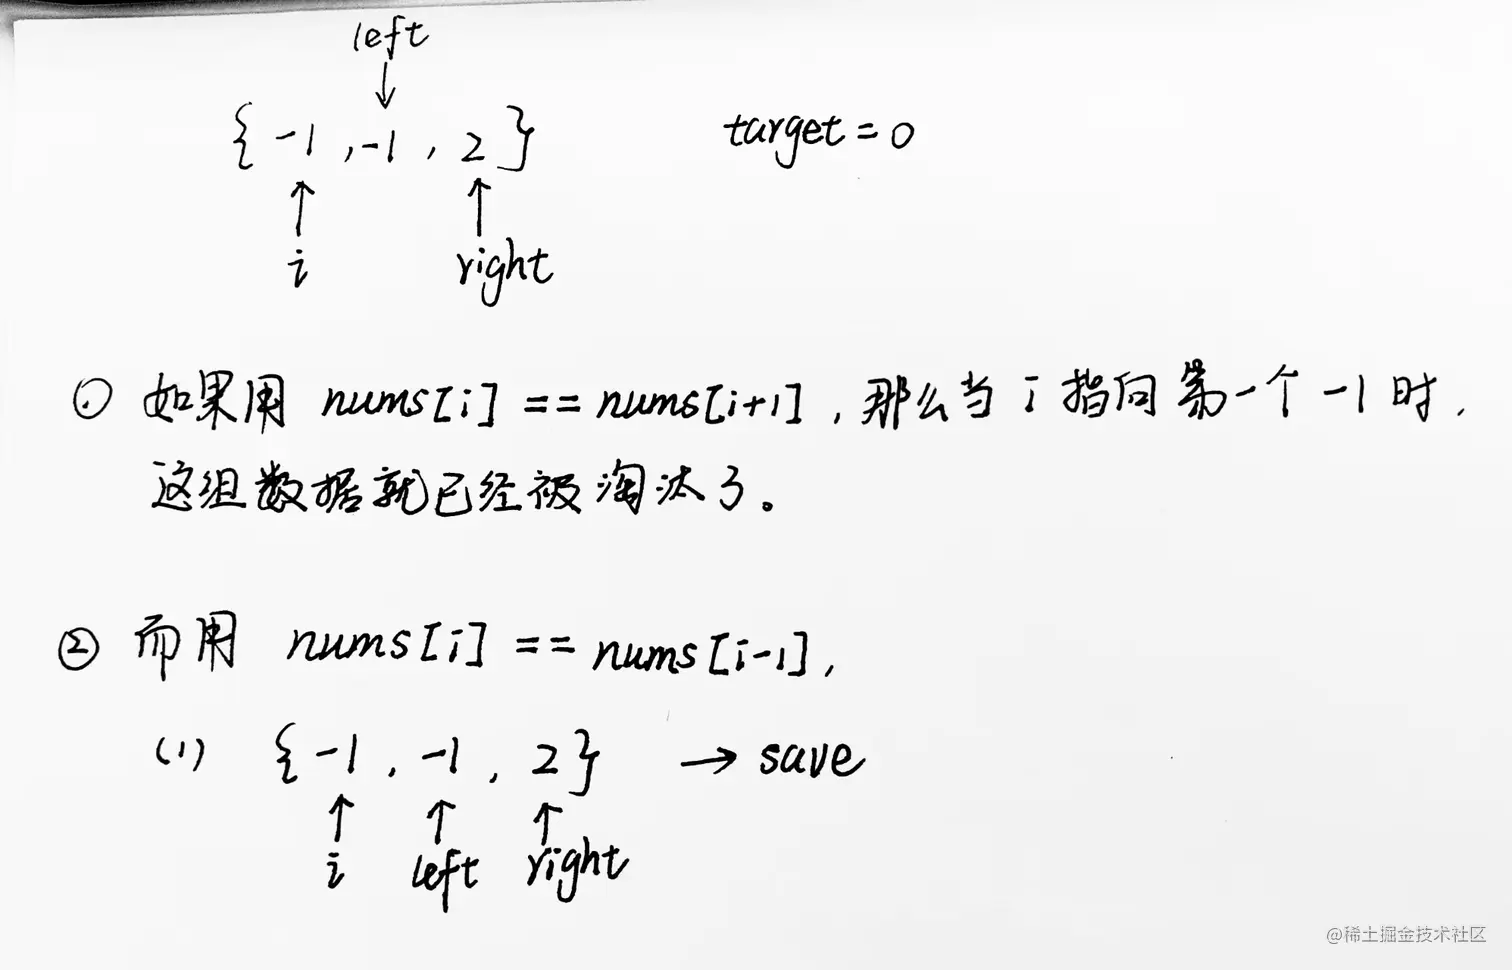 left
↓
{ -1 , -1 , 2 } target = 0
↑ ↑
i right
① 如果用 nums[i] == nums[i+1] , 那么当 i 指向第一个 -1 时 ,
这组数据就已经被淘汰了。
② 而用 nums[i] == nums[i-1] ,
(1) { -1 , -1 , 2 } → save
↑ ↑ ↑
i left right
@稀土掘金技术社区